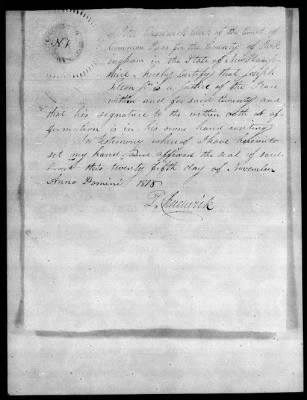 Clerk of the Court of
Common Pleas for the County of Rock
ingham in the State of New Hamp
shire, hereby certify that Joseph
is a justice of the Peace
within and for said County and
that his signature to the within oath or af
firmation is in his own hand writing
In testimony whereof I have hereunto
set my hand and affixed the seal of said
Court this twenty fifth day of November
Anno Domini 1818